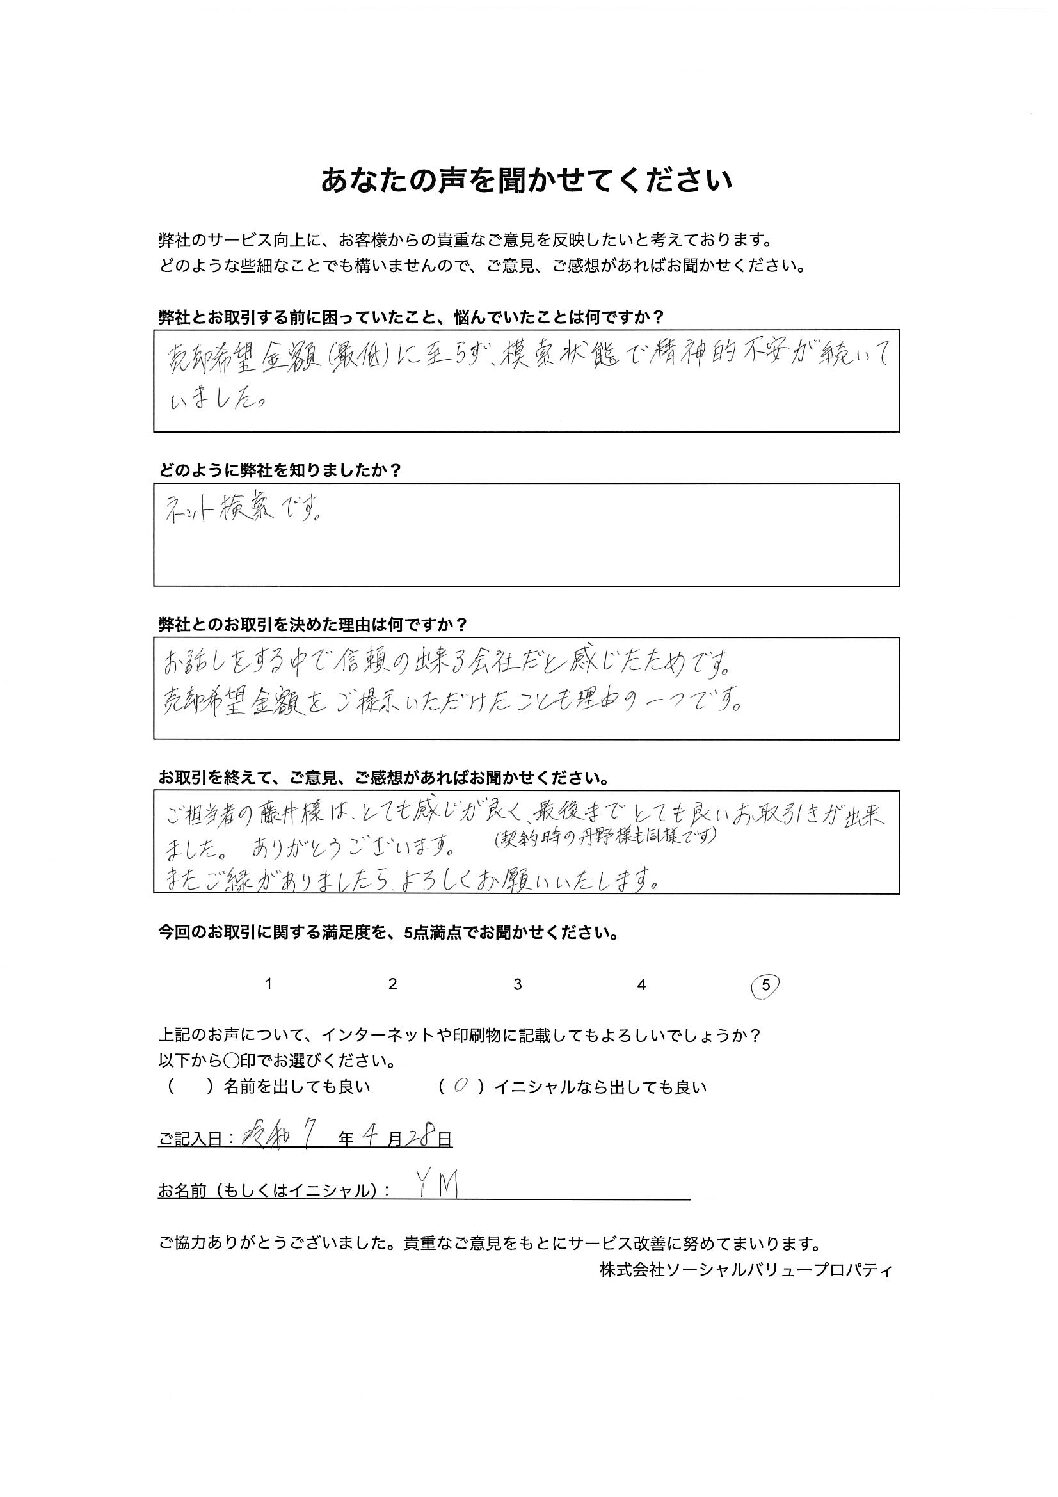 あなたの声を聞かせてください
弊社のサービス向上に、お客様からの貴重なご意見を反映したいと考えております。
どのような些細なことでも構いませんので、ご意見、ご感想があればお聞かせください。
弊社とお取引する前に困っていたこと、悩んでいたことは何ですか？
売却希望金額(最低)に至らず、模索状態で精神的不安が続いて
いました。
どのように弊社を知りましたか？
ネット検索です。
弊社とのお取引を決めた理由は何ですか？
お話しをする中で信頼の出来る会社だと感じたためです。
売却希望金額をご提示いただけたことも理由の一つです。
お取引を終えて、ご意見、ご感想があればお聞かせください。
ご担当者の藤井様は、とても感じが良く、最後までとても良いお取引きが出来
ました。 ありがとうございます。 (契約時の丹野様も同様です)
またご縁がありましたら、よろしくお願いいたします。
今回のお取引に関する満足度を、5点満点でお聞かせください。
1 2 3 4 5
上記のお声について、インターネットや印刷物に記載してもよろしいでしょうか？
以下から〇印でお選びください。
（ ）名前を出しても良い （〇）イニシャルなら出しても良い
ご記入日：令和7 年 4 月28日
お名前（もしくはイニシャル）： YM
ご協力ありがとうございました。貴重なご意見をもとにサービス改善に努めてまいります。
株式会社ソーシャルバリュープロパティ